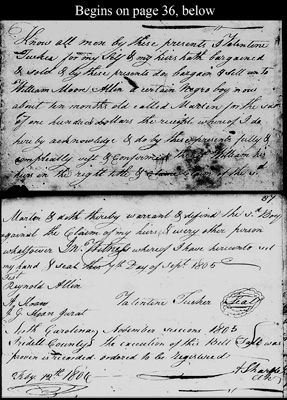 Begins on page 36, below
Know all men by these presents I Valentine
Tucker for my Self & my heirs hath bargained
& sold & by these presents do bargain & sell unto
William Moon Allin a certain Negro boy now
about ten months old called Marlin for the sum
of one hundred dollars the receipt whereof I do
hereby acknowledge & do by these presents fully &
compleatly vest & Confirm in the sd William his
heirs in the right title & claim of the sd
37
Marlin & doth thereby warrant & defend the sd Boy
against the Claim of my heirs & every other person
whatsoever In Witness whereof I have hereunto set
my hand & Seal this 9th Day of Sept 1805
Test
Reynold Allin
A Sloan
J G Sloan Jurat
Valentine Tucker Seal
North Carolina, November sessions 1805
Iredell County the execution of this Bill Sale was
proven & recorded ordered to be registered
Feby. 12th 1806
A Sharpe